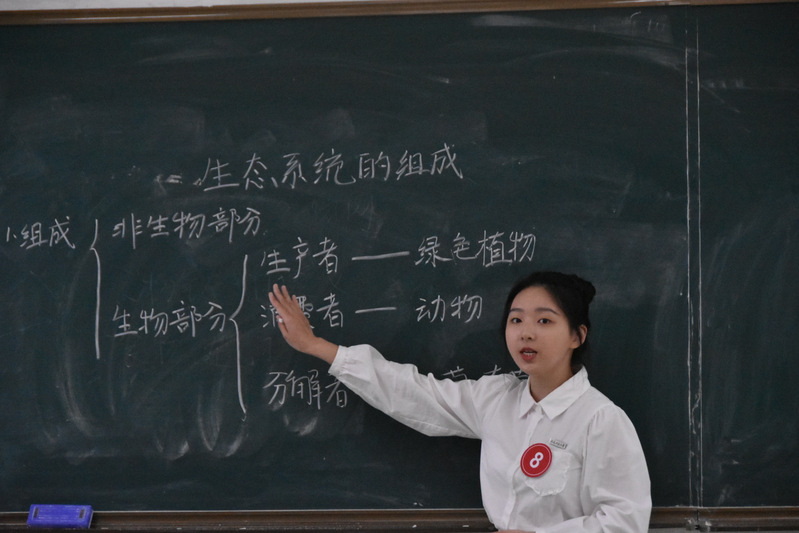 生态系统的组成
1.组成
非生物部分
生物部分
生产者 — 绿色植物
消费者 — 动物
分解者
8